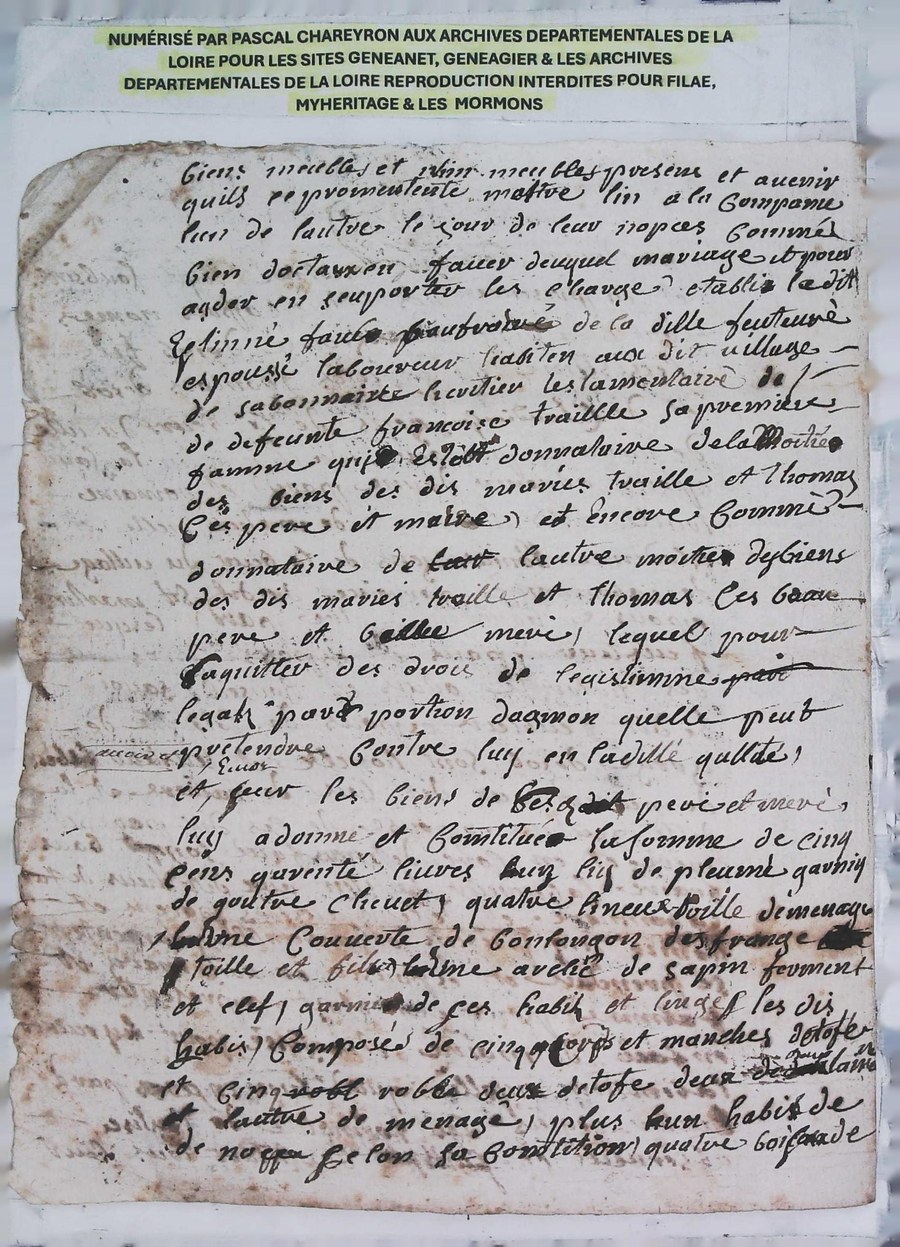 NUMÉRISÉ PAR PASCAL CHAREYRON AUX ARCHIVES DEPARTEMENTALES DE LA
LOIRE POUR LES SITES GENEANET, GENEAGIER & LES ARCHIVES
DEPARTEMENTALES DE LA LOIRE REPRODUCTION INTERDITES POUR FILAE,
MYHERITAGE & LES MORMONS
biens meubles et meubles presens et avenir
quils ce promentente mettre lin a la Compame
lun de lautre le jour de leur nopces Comme
bien doctaux en faver duquel mariage et pour
aider en suporter les charge etablis la dit
faure de la dille feuteure
espouse laboureur habiten aux dit village
de sabonnaire heritier testamentaire de
de defeunte francoise traillle sa premiere
famme qui Estoit donnataire de la moitie
des biens des dis maries traille et Thomas
Ces pere et maire, et Encore Comme
donnataire de leur lautre moitie dysbiens
des dis maries traille et thomas Ces beau
pere et belle mere, lequel pour
saquitter des drois de legistimme part
legats part portion dagmon quelle peut
avoir et
pretendre Contre luy en ladille qullite,
et, sur les biens de pere et mere,
luy adonne et Comtitue la somme de cinq
Cens garente livres huy liy de pleume garniy
de goutre Chevet, quatre lineux toille demenage
hunne Couverte de boulongon des frange
toille et fille, hunne arche de sapin ferment
et clef, garnie de ses habis et linges les dis
habis, Composes de cinq Corps et manches detofe
et cinq robl robbe deux detofe deux laine
et lautre de menage, plus hun habis de
de nosse selon sa Comtition, quatre